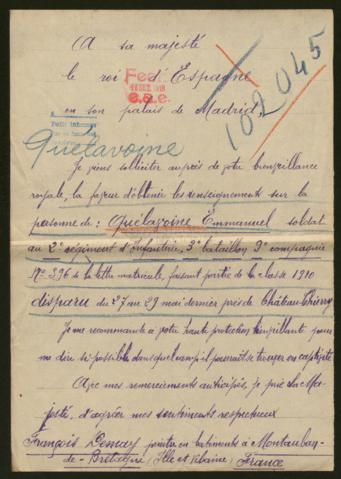 A sa majesté
le roi d'Espagne
en son palais de Madrid,
102045
Quélavoine
Je viens solliciter auprès de votre bienveillance
royale, la faveur d'obtenir les renseignements sur la
personne de: Quélavoine Emmanuel soldat
au 2e régiment d'Infanterie, 3e bataillon 9e compagnie
No 296 de la lettre matricule, faisant partie de la classe 1910
disparu du 27 au 29 mai dernier près de Château Thierry
Je me recommande à votre haute protection bienveillante pour
me dire si possible dans quel camp il pourrait se trouver en captivité
Avec mes remerciements anticipés, je prie Sa Ma-
jesté, d'agréer mes sentiments respectueux
François Demay peintre en bâtiments à Montauban-
de-Bretagne (Ille et Vilaine) France